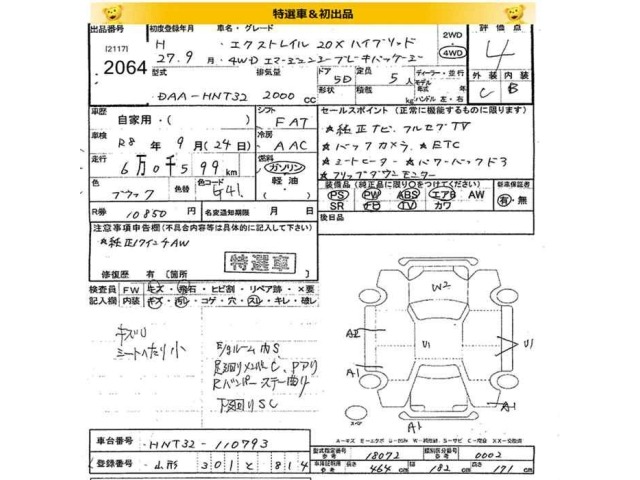 特選車&初出品
出品番号 初度登録年月 車名・グレード 2WD 評価点
[2117] H ・エクストレイル 20X ハイブリッド 4WD
2064 27.9月 ・4WD エマージェンシーブレーキパッケージ 4
型式 排気量 ドア 定員 ディーラー・並行 外装 内装
DAA-HNT32 2000cc 5D 5人 モデル 年 C B
形状 積載 kg ハンドル 左・右
車歴 自家用( ) シフト FAT セールスポイント(正常に機能するものに限ります)
車検 R8年9月(24日) 冷房 AAC ★純正ナビ・フルセグTV
★バックカメラ ★ETC
走行 6万0千599km 燃料 ガソリン・軽油・ ★シートヒーター ★パワーバックドア
★フリップダウンモニター
色 ブラック 色替 色コード G41 装備品(純正品に限り○をつけてください) 新車保証書
PS PW ABS エアB AW 有・無
SR ナビ TV カワ
R券 10850円 名変通知期限 月 日 後日品
注意事項申告欄(不具合内容等は具体的に記入して下さい)
★純正17インチAW
特選車
修復歴 有[箇所
検査員 FW キズ・飛石・ヒビ割・リペア跡・×要
記入欄 内装 キズ・汚レ・コゲ・穴・スレ・キレ・破レ
キズU
シートへたり小
E/gルーム内S
足廻りメンバC、Pアリ
Rバンパーステー曲り
下廻りSC
W2
A2 U1 U1
A1 A1
A1
A-キズ
車台番号 HNT32-110793
登録番号 山形 301 と 814
型式指定番号 18072 類別区分番号 0002
長さ 464cm 幅 182cm 高さ 171cm